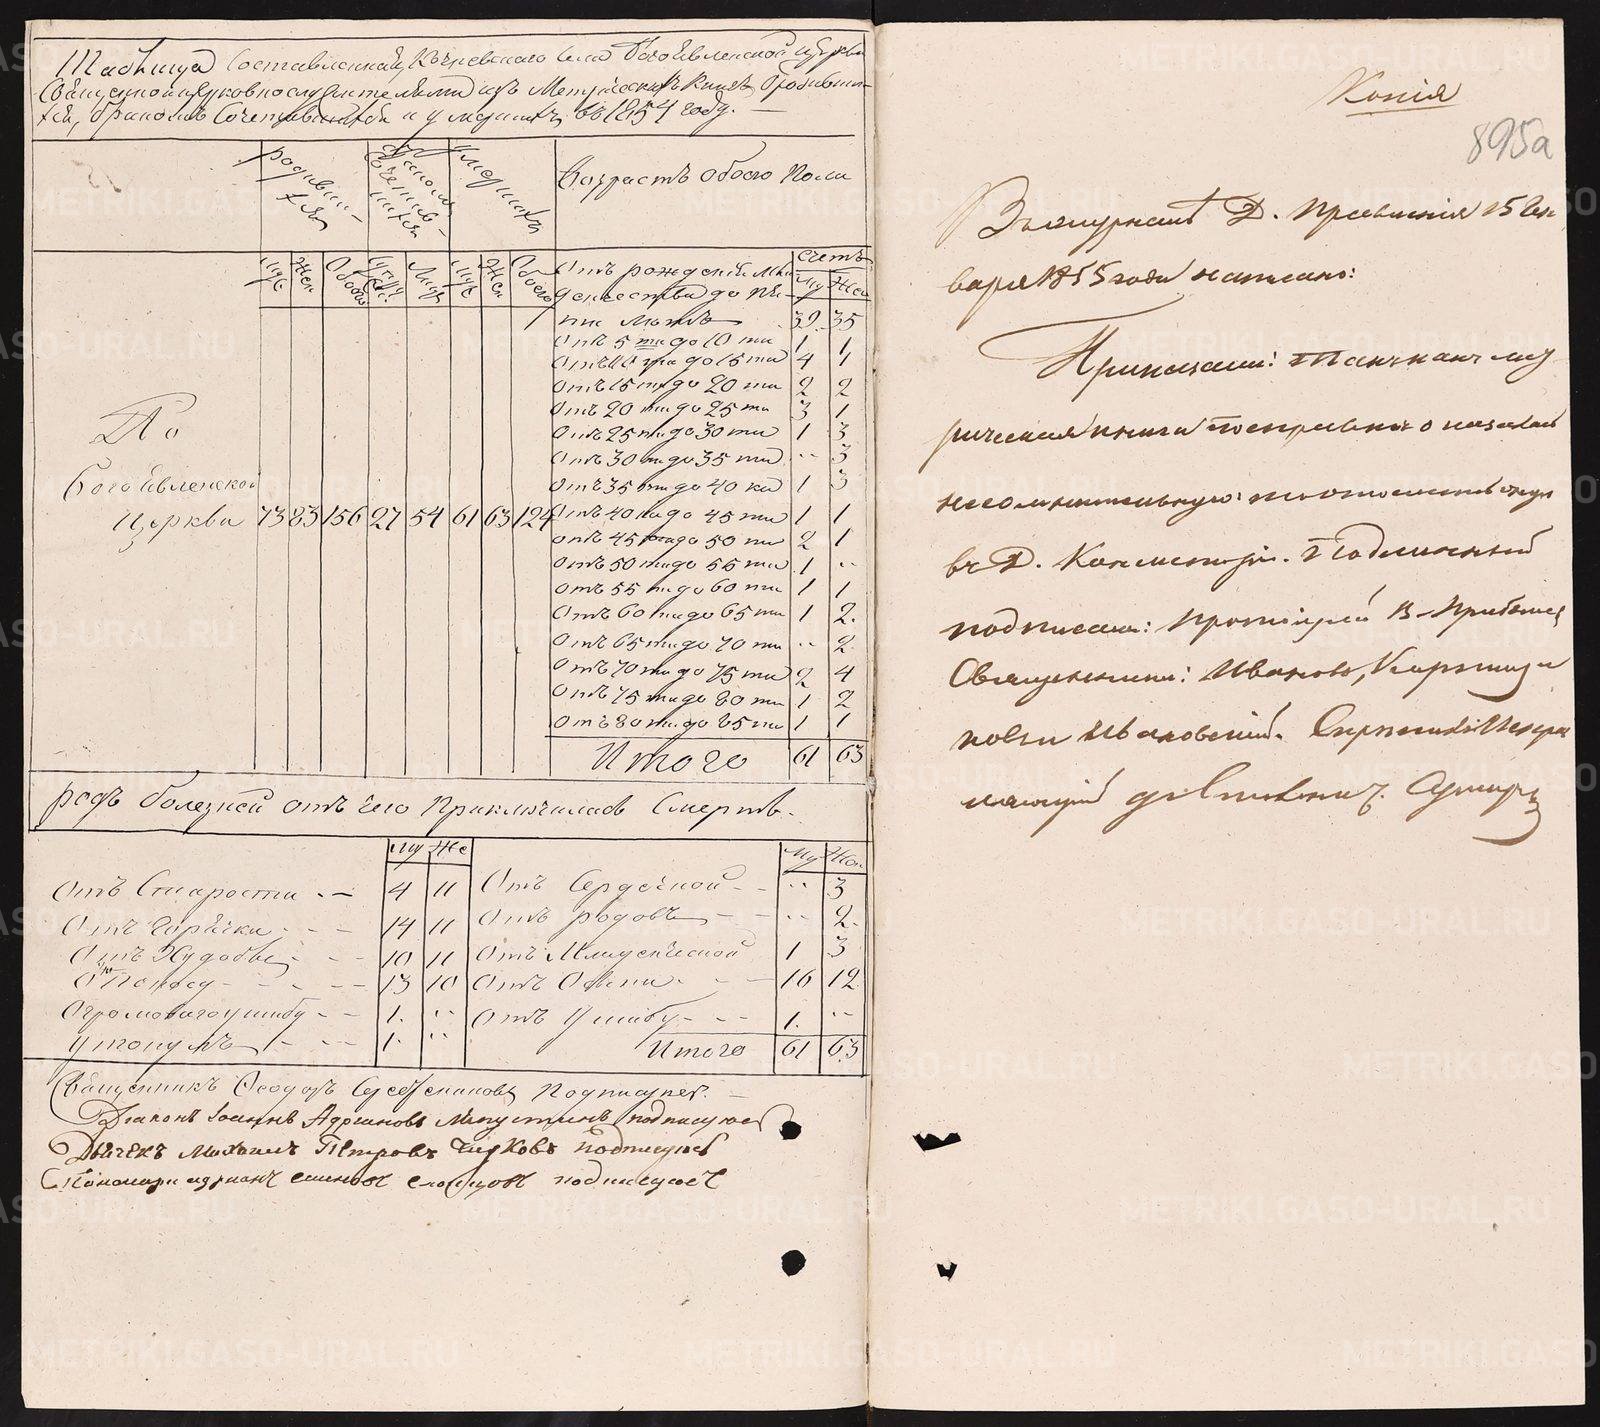 Таблица Составленная Кочневскаго Села Богоявленской Церкви
Священноцерковнослужителями изъ Метрическихъ Книгъ О родивши-
хся, бракомъ Сочетавшихся и умершихъ въ 1854 году.
родивши-
хся
бракомъ
Сочетав-
шихся
умершихъ
Возрастъ обоего Пола
Муж
Жен
Обоего
Лиц
Муж
Жен
Обоего
Отъ рожденія Мла-
денчества до пя-
ти лѣтъ
Счетъ
Му Же
39. 35
Отъ 5 ти до 10 ти 1 1
Отъ 10 ти до 15 ти 4 1
Отъ 15 ти до 20 ти 2 2
Отъ 20 ти до 25 ти 3 1
Отъ 25 ти до 30 ти 1 3
Отъ 30 ти до 35 ти .. 3
Отъ 35 ти до 40 ка 1 3
По
Богоявленской
Церкви 73 83 156 27 54 61 63 124
Отъ 40 ка до 45 ти 1 1
Отъ 45 ти до 50 ти 2 1
Отъ 50 ти до 55 ти 1 ..
Отъ 55 ти до 60 ти 1 1
Отъ 60 ти до 65 ти 1 2.
Отъ 65 ти до 70 ти .. 2
Отъ 70 ти до 75 ти 2 4
Отъ 75 ти до 80 ти 1 2
Отъ 80 ти до 85 ти 1 1
Итого 61 63
родъ болезней отъ чего Приключилась Смерть.
Му Же
Отъ Старости 4 11
Отъ Горячки 14 11
Отъ Худобы 10 11
Поносу 13 10
Огромоваго ушибу 1. ..
Утонулъ 1. ..
Му Же
Отъ Сердечной .. 3
Отъ родовъ .. 2.
Отъ Младенческой 1 3
Отъ Оспы 16 12
Отъ Ушибу 1. ..
Итого 61 63
Священникъ Ѳеодоръ Серебрениковъ Подписуюсь.
Діаконъ Іоаннъ Адріановъ подписуюсь
Дьячекъ Михаилъ Петровъ Чирковъ Подписуюсь
Пономарь адріанъ Словцовъ подписуюсь
Копія
895а
Въ журналѣ Д. Правленія 15 Ян
варя 1855 года написано:
Приказали: Такъ какъ мет
рическая книга по справкѣ оказалась
несомнительную: то отослать оную
въ Д. Консисторію. Подлинный
подписали: Протоіерей В.
Священники: Ивановъ,